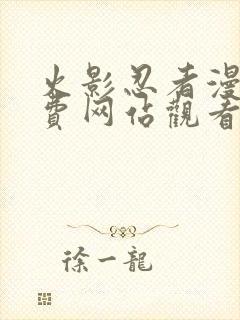 火影忍者漫
费网佔觀看
徐一龍